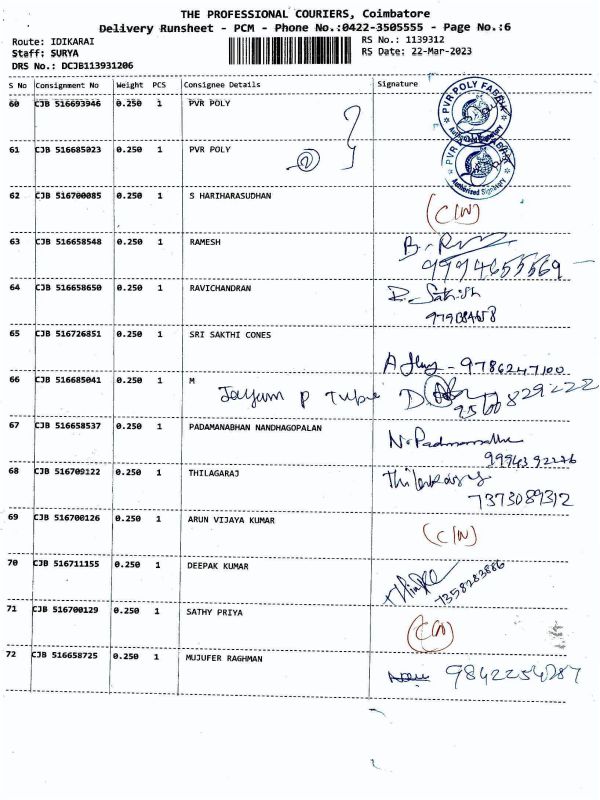 THE PROFESSIONAL COURIERS, Coimbatore
Delivery Runsheet - PCM - Phone No.:0422-3505555 - Page No.:6
Route: IDIKARAI RS No.: 1139312
Staff: SURYA RS Date: 22-Mar-2023
DRS No.: DCJB113931206
S No Consignment No Weight PCS Consignee Details Signature
60 CJB 516693946 0.250 1 PVR POLY
PVR POLY FABRIK
Authorized Signatory
61 CJB 516685023 0.250 1 PVR POLY
2
Authorized Signatory
62 CJB 516700085 0.250 1 S HARIHARASUDHAN
(CIN)
63 CJB 516658548 0.250 1 RAMESH
9994655569
64 CJB 516658650 0.250 1 RAVICHANDRAN R. Sathish
65 CJB 516726851 0.250 1 SRI SAKTHI CONES
9786247100
66 CJB 516685041 0.250 1 M
Jayam P Tube
67 CJB 516658537 0.250 1 PADAMANABHAN NANDHAGOPALAN
9994392276
68 CJB 516709122 0.250 1 THILAGARAJ
7373089312
69 CJB 516700126 0.250 1 ARUN VIJAYA KUMAR
(CIN)
70 CJB 516711155 0.250 1 DEEPAK KUMAR
7358283886
71 CJB 516700129 0.250 1 SATHY PRIYA
(CIN)
72 CJB 516658725 0.250 1 MUJUFER RAGHMAN
9842254787